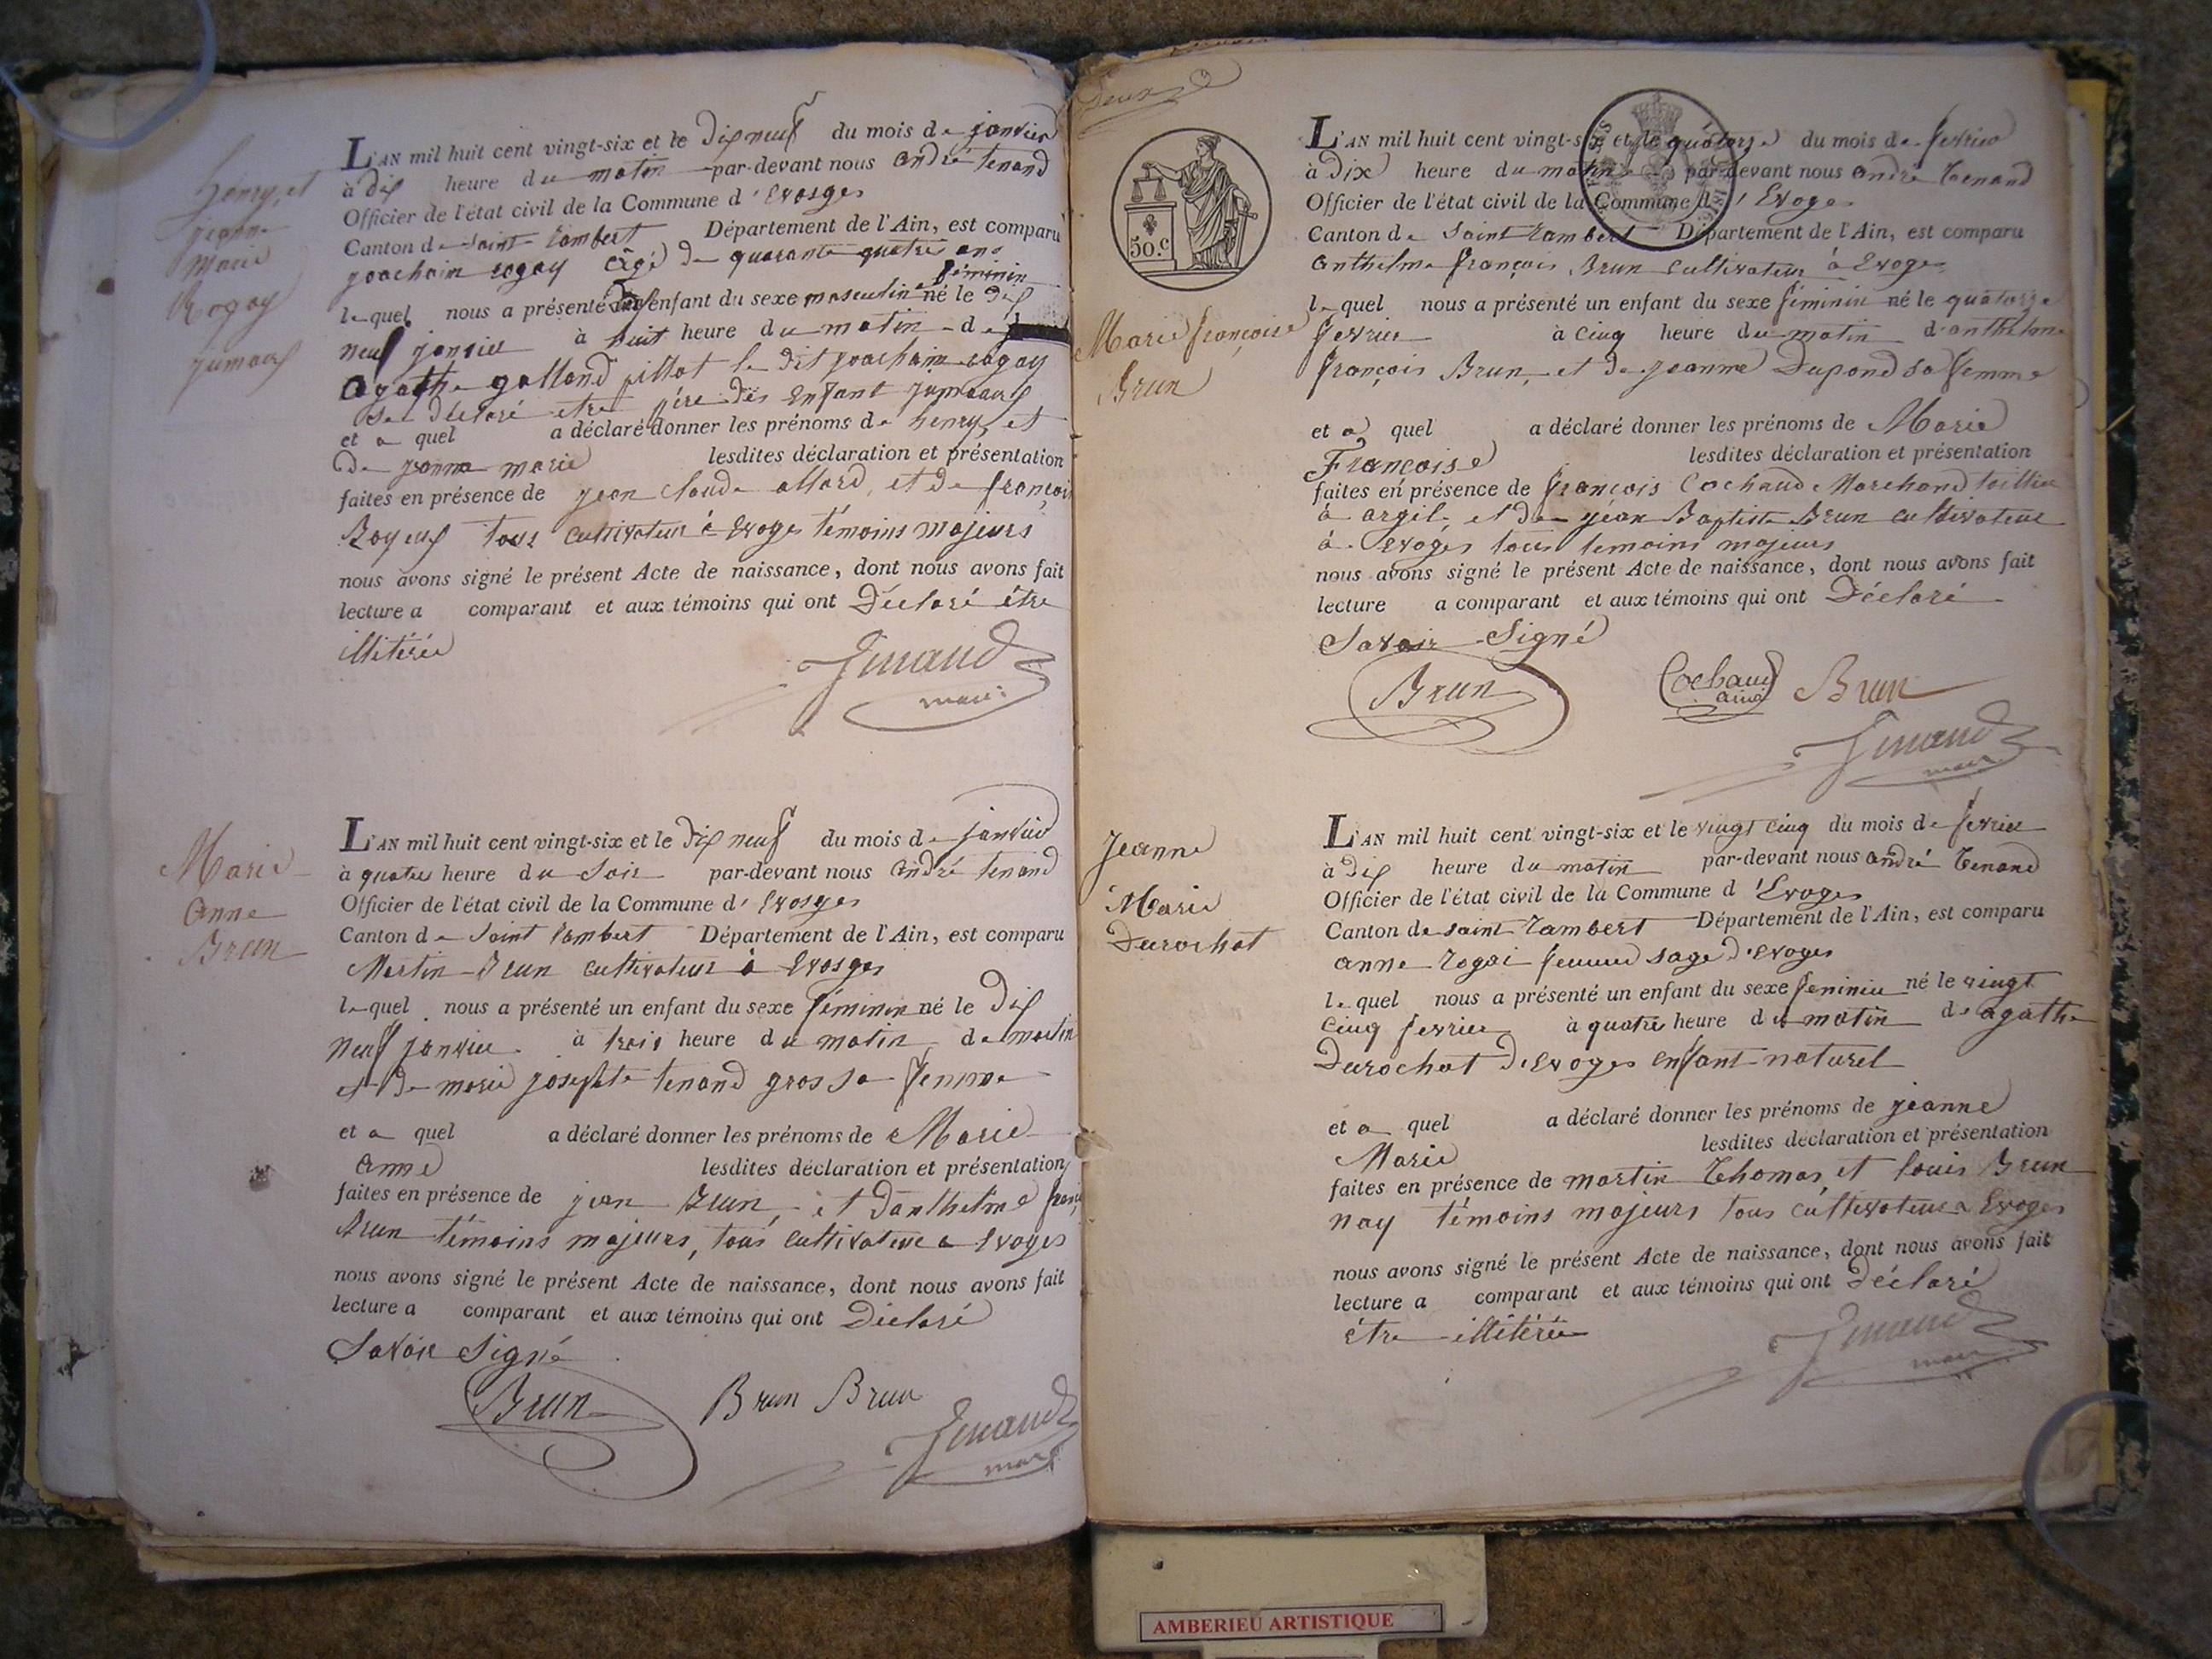 henry, et
jeanne
Marie
Rogay
jumaux
L'AN mil huit cent vingt-six et le Dix neuf du mois de janvier
à dix heure du matin par-devant nous andré tenand
Officier de l'état civil de la Commune d'Evosges
Canton de Saint Rambert Département de l'Ain, est comparu
joachain rogay agé de quarante quatre ans
féminin
lequel nous a présenté enfant du sexe masculin né le dix
neuf janvier à huit heure du matin de
agathe galland pillot le dit joachain rogay
declaré etre père des enfant jumeaux
et a quel a déclaré donner les prénoms de henry et
de jeanne marie lesdites déclaration et présentation
faites en présence de jean claude allard, et de françois
Royeux tous cultivateur à Evoges témoins majeurs
nous avons signé le présent Acte de naissance, dont nous avons fait
lecture a comparant et aux témoins qui ont Déclaré être
illitérée
Tenand
maire
Marie
Anne
Brun
L'AN mil huit cent vingt-six et le dix neuf du mois de janvier
à quatre heure du Soir par-devant nous andré tenand
Officier de l'état civil de la Commune d'Evosges
Canton de Saint Rambert Département de l'Ain, est comparu
Martin Brun cultivateur à Evosges
lequel nous a présenté un enfant du sexe féminin né le Dix
neuf janvier à trois heure du matin de martin
et de marie josephte tenand gros sa femme
et a quel a déclaré donner les prénoms de Marie
anne lesdites déclaration et présentation
faites en présence de jean Brun, et Danthelme françois
Brun témoins majeurs, tous cultivateur a Evoges
nous avons signé le présent Acte de naissance, dont nous avons fait
lecture a comparant et aux témoins qui ont Déclaré
Savoir Signé
Brun Brun Brun
Tenand
maire
Deux
50.c
Marie françoise
Brun
L'AN mil huit cent vingt-six et le quatorze du mois de fevrier
à Dix heure du matin par-devant nous andré tenand
Officier de l'état civil de la Commune d'Evoges
Canton de Saint Rambert Département de l'Ain, est comparu
anthelme françois Brun cultivateur à Evoges
lequel nous a présenté un enfant du sexe féminin né le quatorze
fevrier à cinq heure du matin d'anthelme
françois Brun, et de jeanne Dupond sa femme
et a quel a déclaré donner les prénoms de Marie
Françoise lesdites déclaration et présentation
faites en présence de françois Cochaud Marchand
à argil et de jean Baptiste Brun cultivateur
à Evoges tous temoins majeurs
nous avons signé le présent Acte de naissance, dont nous avons fait
lecture a comparant et aux témoins qui ont Déclaré
Savoir Signé
Brun Cochaud Brun
ainé
Tenand
maire
Jeanne
Marie
Durochat
L'AN mil huit cent vingt-six et le vingt cinq du mois de fevrier
à dix heure du matin par-devant nous andré tenand
Officier de l'état civil de la Commune d'Evoges
Canton de saint Rambert Département de l'Ain, est comparu
anne rogai femme sage d'evoges
lequel nous a présenté un enfant du sexe feminin né le vingt
cinq fevrier à quatre heure du matin de agathe
Durochat d'evoges enfant naturel
et a quel a déclaré donner les prénoms de jeanne
Marie lesdites déclaration et présentation
faites en présence de martin Thomas, et louis Brun
nay témoins majeurs tous cultivateur a Evoges
nous avons signé le présent Acte de naissance, dont nous avons fait
lecture a comparant et aux témoins qui ont Déclaré
être illitérée
Tenand
maire
AMBERIEU ARTISTIQUE